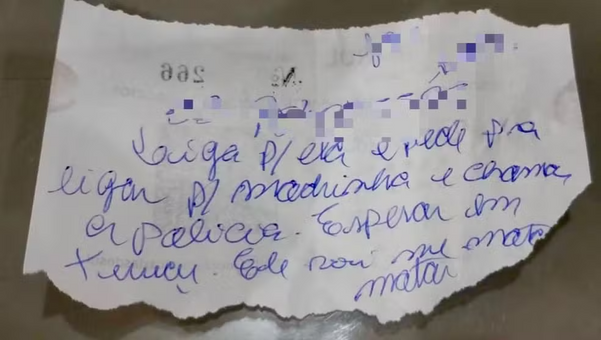 266 No
Liga p/ ela e pede pra
ligar p/ madrinha e chamar
a policia. Esperar em
Ele vai me matar
matar